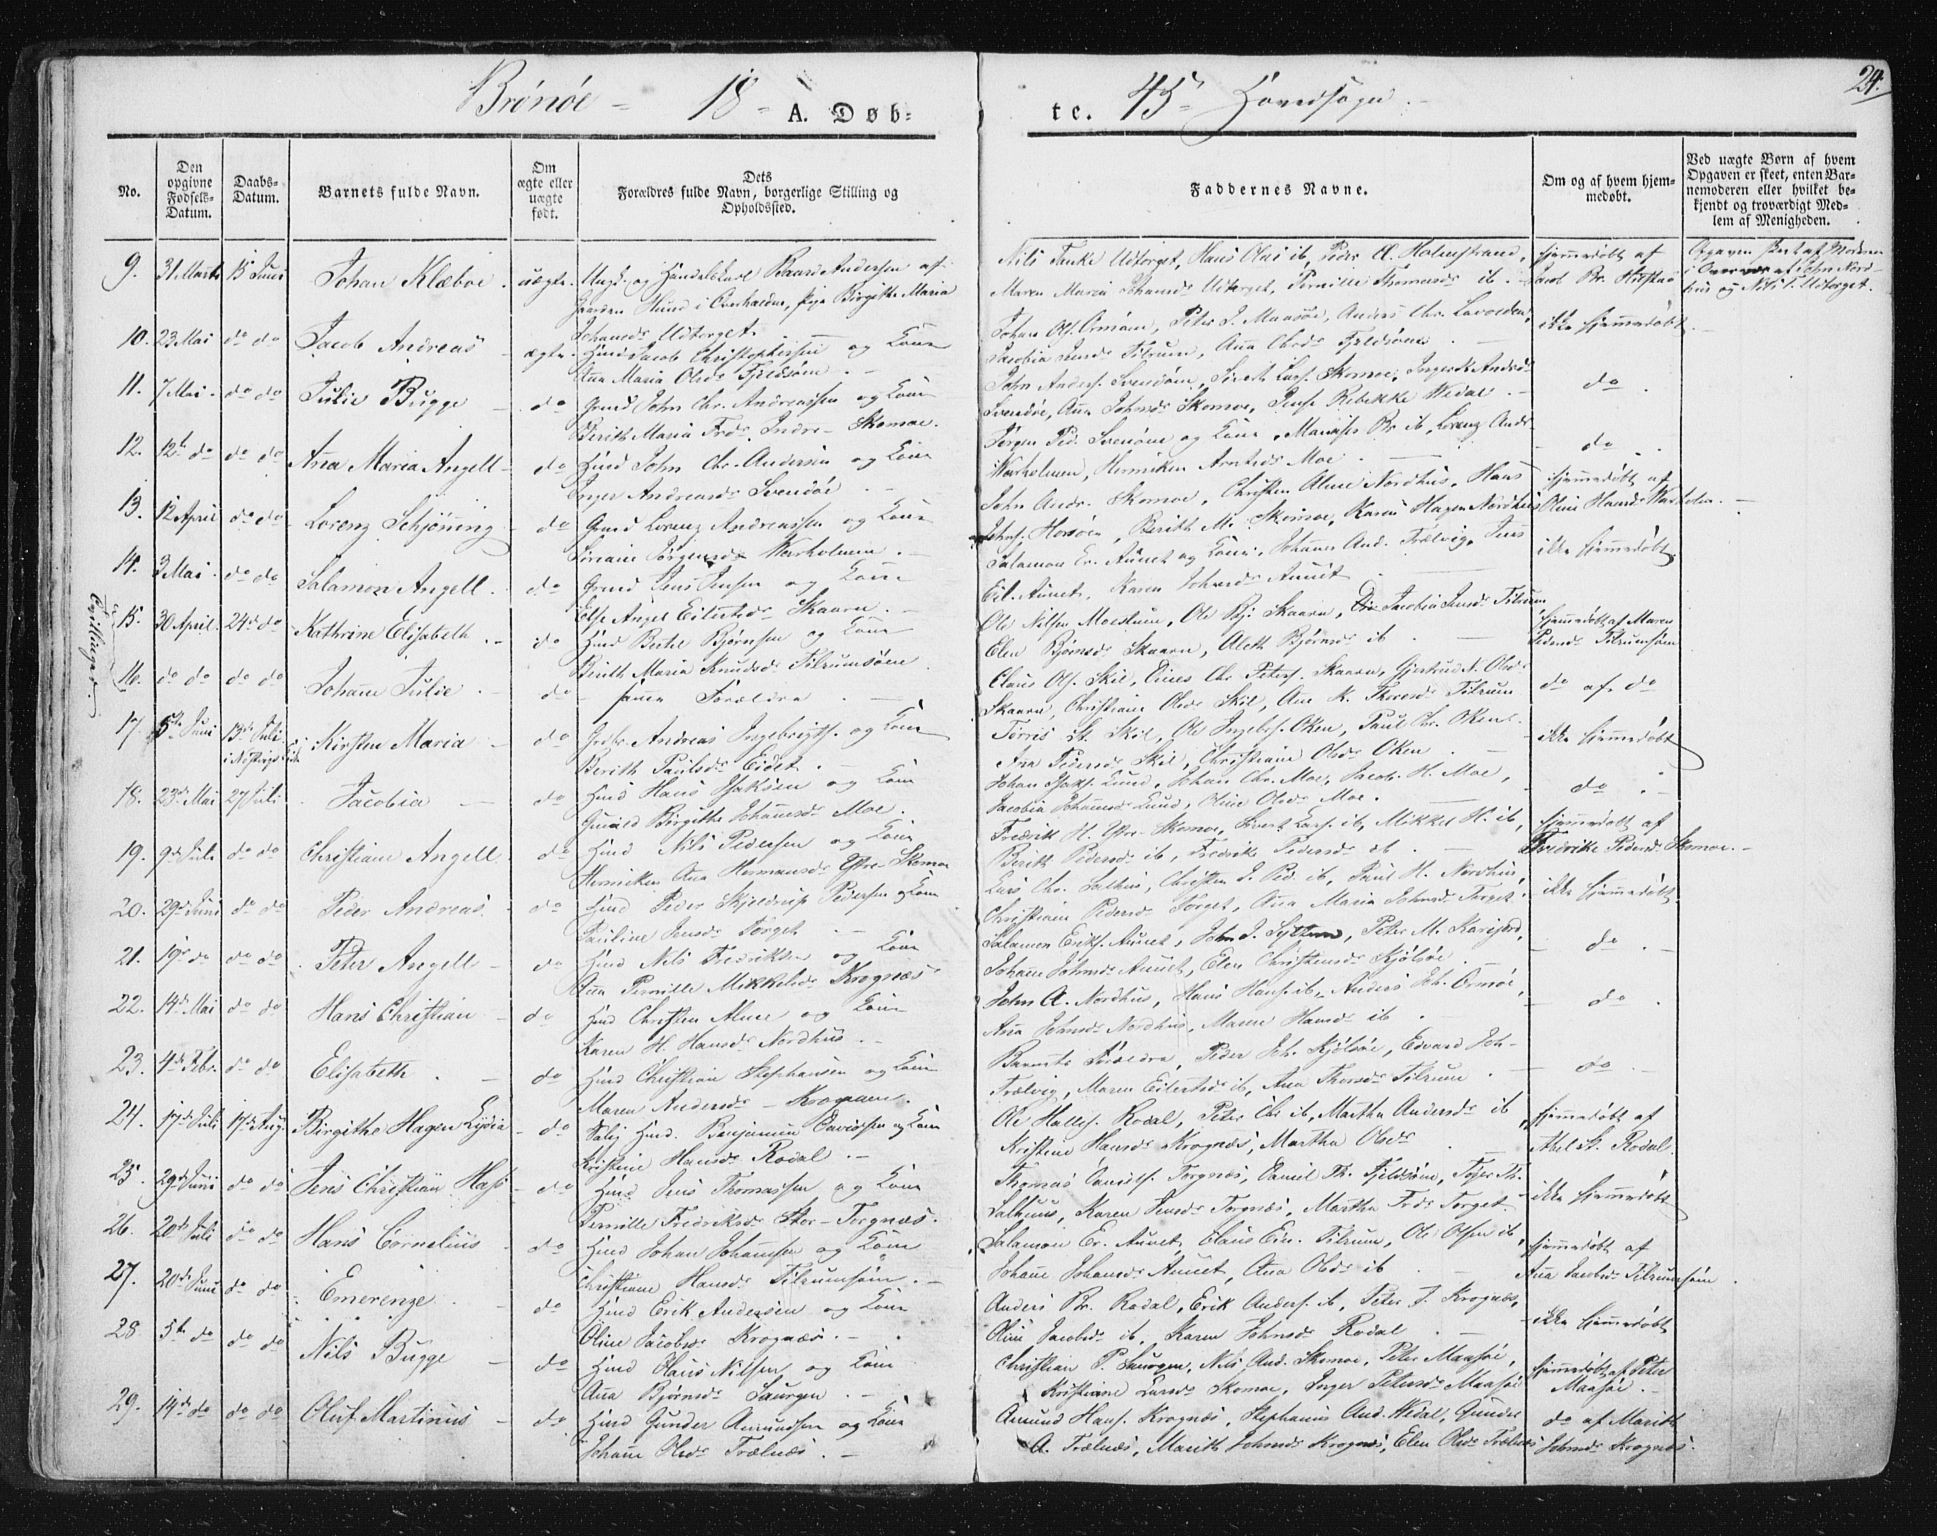 Brönöe - 18 - A. Døb-
te. 45 Hovedsogn.
24.
No.
Den opgivne Fødsels-Datum.
Daabs-Datum.
Barnets fulde Navn.
Om ægte eller uægte født.
Dets Forældres fulde Navn, borgerlige Stilling og Opholdssted.
Faddernes Navne.
Om og af hvem hjemmedøbt.
Ved uægte Børn af hvem Opgaven er skeet, enten Barnemoderen eller hvilket bekjendt og troværdigt Medlem af Menigheden.
9. 31 Marts 15 Juni Johan Klæboe. uægte. Ungk. og Handelskarl Baard Andersen af
Gaarden Hund i Overhalden, Pige Birgitte Maria
Johansd. Udtorget.
Nils Tanke Udtorget, Hans Olai ib, Peder A. Holmstrand,
Maren Maria Johansd. Udtorget, Pernille Thomasd. ib.
hjemmedøbt af
Jacob Br. Hilstad
Opgaven skeet af Moderen
i Overvær af John Nord-
hus og Nils T. Udtorget.
10. 23 Mai do do Jacob Andreas ægte. Huusd Jacob Christophersen og Kone
Ana Maria Olsd. Fjeldsöen.
Johan Ols. Ormöen, Peter J. Maasöe, Anders Chr.
Jacobia Jensd. Tilrum, Ana Chrd. Fjeldsöen.
ikke hjemmedøbt.
11. 7 Mai do do Julie Bugge do Grmd John Chr. Andreassen og Kone
Berith Maria Frd. Indre-Skomoe.
John Anders. Svendöen, Sivert Lars. Skomoe, Ingerd. Andrd.
Svendöe, Ana Johnsd. Skomoe, Rebekke Wedal.
do
12. 12te do do do Ana Maria Angell do Huusd John Chr. Andersen og Kone
Inger Andreasd. Svendöe
Jörgen Ped. Svenöen og Kone, Br. ib, Lorenz Andr.
Warholmen, Henniken Arntsd. Moe.
do.
13. 12 April do do Lorenz Schjöning do Grmd Lorenz Andreassen og Kone
Jörgensd. Warholmen.
John Andr. Skomoe, Christen Alme Nordhus, Hans
Johs. Horsöen, Berith M. Skomoe, Karen Hagen Nordhus
hjemmedøbt af
Oline Hansd. Warholm.
14. 3 Mai do do Salamon Angell. do Grmd Jens Jensen og Kone
Else Angel Eilertsd. Skaaren.
Salamon Er. Aunet og Kone, Johannes And. Trælvig, Jens
Eil. Aunet, Karen Johansd. Aunet
ikke hjemmedøbt.
Tvillinger
15. 30 April. 24 do Kathrine Elisabeth. do Huusd Bernt Björnsen og Kone
Berith Maria Knudsd. Tilrumsöen.
Ole Nilsen Moestuen, Ole Bj. Skaaren, Jacobia Jensd. Tilrum
Elen Björnsd. Skaaren, Aleth Björnsd. ib
hjemmedøbt af Maren
Pedersd. Tilrumsöen
16. do do do do Johan Julie. do samme Forældre
Claus Ols. Skil, Dines Chr. Peters. Skaaren, Gjertrud N. Olsd.
Skaaren, Christiane Olsd. Skil, Ane K. Thoresd. Tilrum
do af do
17. 5te Juni 13de Juli Kirsten Maria do Andreas Ingebrigts. og Kone
Berith Paulsd. Eidet.
Torris St. Skil, Ole Ingebr. Oken, Paul Chr. Oken
Ana Pedersd. Skil, Christiane Olsd. Oken.
ikke hjemmedøbt
18. 23de Mai 27 Juli Jacobia do Huusd Hans Isaksen og Kone
Gunild Birgithe Johansd. Moe.
Johan Isaks. Lund, Johan Chr. Moe, Jacob H. Moe,
Jacobia Johansd. Lund, Oline Olsd. Moe.
do
19. 9de Juli do do Christiane Angell do Huusd Nils Pedersen og Kone
Henniken Ana Hermansd. Ytre-Skomoe
Fredrik H. Ytre-Skomoe, Sivert Lars. ib, Mikkel H. ib,
Berith Pedersd. ib, Fredrike Pedersd. ib.
hjemmedøbt af
Fredrike Pedersd. Skomoe.
20. 29de Juni do do Peder Andreas do Huusd Peder Skjeldrup Pedersen og Kone
Pauline Jensd. Torget
Lars Chr. Salhus, Christen J. Ped. ib, Paul H. Nordhus,
Christiane Pedersd. Torget, Ana Maria Johnsd. Torget.
ikke hjemmedøbt
21. 19de do do do Peter Angell do Huusd Nils Fredriksen og Kone
Ana Pernille Mikkelsd. Krognæs
Salamon Eriks. Aunet, John J. Sylten, Peter M.
Johane Johnsd. Aunet, Elen Christensd. Kjölsöe.
do
22. 14de Mai do do Hans Christian do Huusd Christen Alme og Kone
Karen H. Hansd. Nordhus.
John A. Nordhus, Hans Hans. ib, Anders Joh. Ormöe,
Ana Johnsd. Nordhus, Maren Hansd. ib
do
23. 4de Febr. do do Elisabeth. do Huusd Christian Stephansen og Kone
Maren Andersd. Krognæs.
Barnets Forældre, Peder Joh. Kjölsöe, Edvard Joh.
Trælvig, Maren Eilertsd. ib, Ana Thorsd. Tilrum.
do
24. 17de Juli 17de Aug. Birgithe Hagen Lydia do Huusd. Benjamin Davidsen og Kone
Kristine Hansd. Rodal.
Ole Halls. Rodal, Peter Chr. ib, Martha Andersd. ib
Kristine Hansd. Krognæs, Martha Olsd.
hjemmedøbt af
Rodal.
25. 29de Juni do do Jens Christian Hass do Huusd Jens Thomassen og Kone
Pernille Fredriksd. Stor-Torgnæs.
Thomas Davids. Torgnæs, Daniel Th. Fjeldsöen, Th.
Salhus, Karen Jensd. Torgnæs, Martha Frd. Torget.
ikke hjemmedøbt
26. 20de Juli do do Hans Cornelius do Huusd Johan Johansen og Kone
Christiane Hansd. Tilrumsöen.
Salamon Er. Aunet, Claus Tilrum, Ole Olsen ib,
Johane Johansd. Aunet, Ana Olsd. ib
hjemmedøbt af
Ana Jacobsd. Tilrumsöen.
27. 20de Juni do do Emerenze. do Huusd Erik Andersen og Kone
Oline Jacobsd. Krognæs.
Anders Br. Rodal, Erik Anders. ib, Peter J. Krognæs,
Oline Jacobsd. ib, Karen Johnsd. Rodal
ikke hjemmedøbt
28. 5te do do do Nils Bugge do Huusd Claus Nilsen og Kone
Ana Björnsd. Saurgen.
Christian P. Saurgen, Nils And. Skomoe, Peter Maasöe,
Kristiane Larsd. Skomoe, Inger Petersd. Maasöe
hjemmedøbt af Peter
Maasöe.
29. 14de do do do Oluf Martinus do Huusd Gunder Amundsen og Kone
Johane Olsd. Trælnæs.
Amund Hans. Krognæs, Stephanus And. Wedal, Gunder
A. Trælnæs, Marith Johnsd. Krognæs, Elen Olsd. Trælnæs
do af Marith
Johnsd. Krognæs.